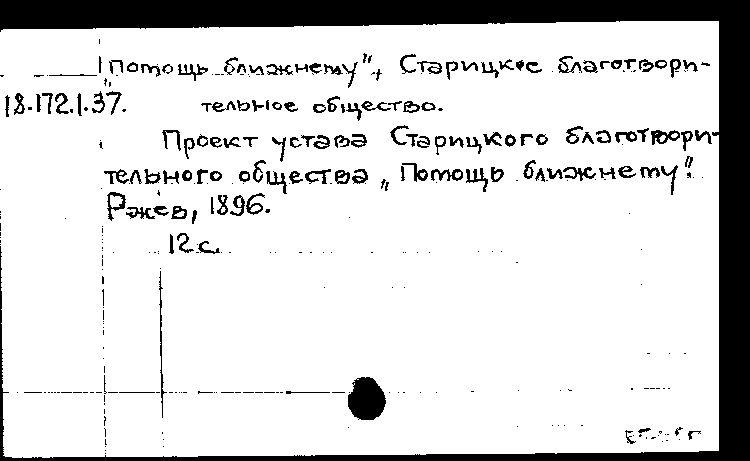 „Помощь ближнему", Старицкое благотвори-
18.172.1.37. тельное общество.
Проект устава Старицкого благотвори-
тельного общества „Помощь ближнему".
Ржев, 1896.
12 с.